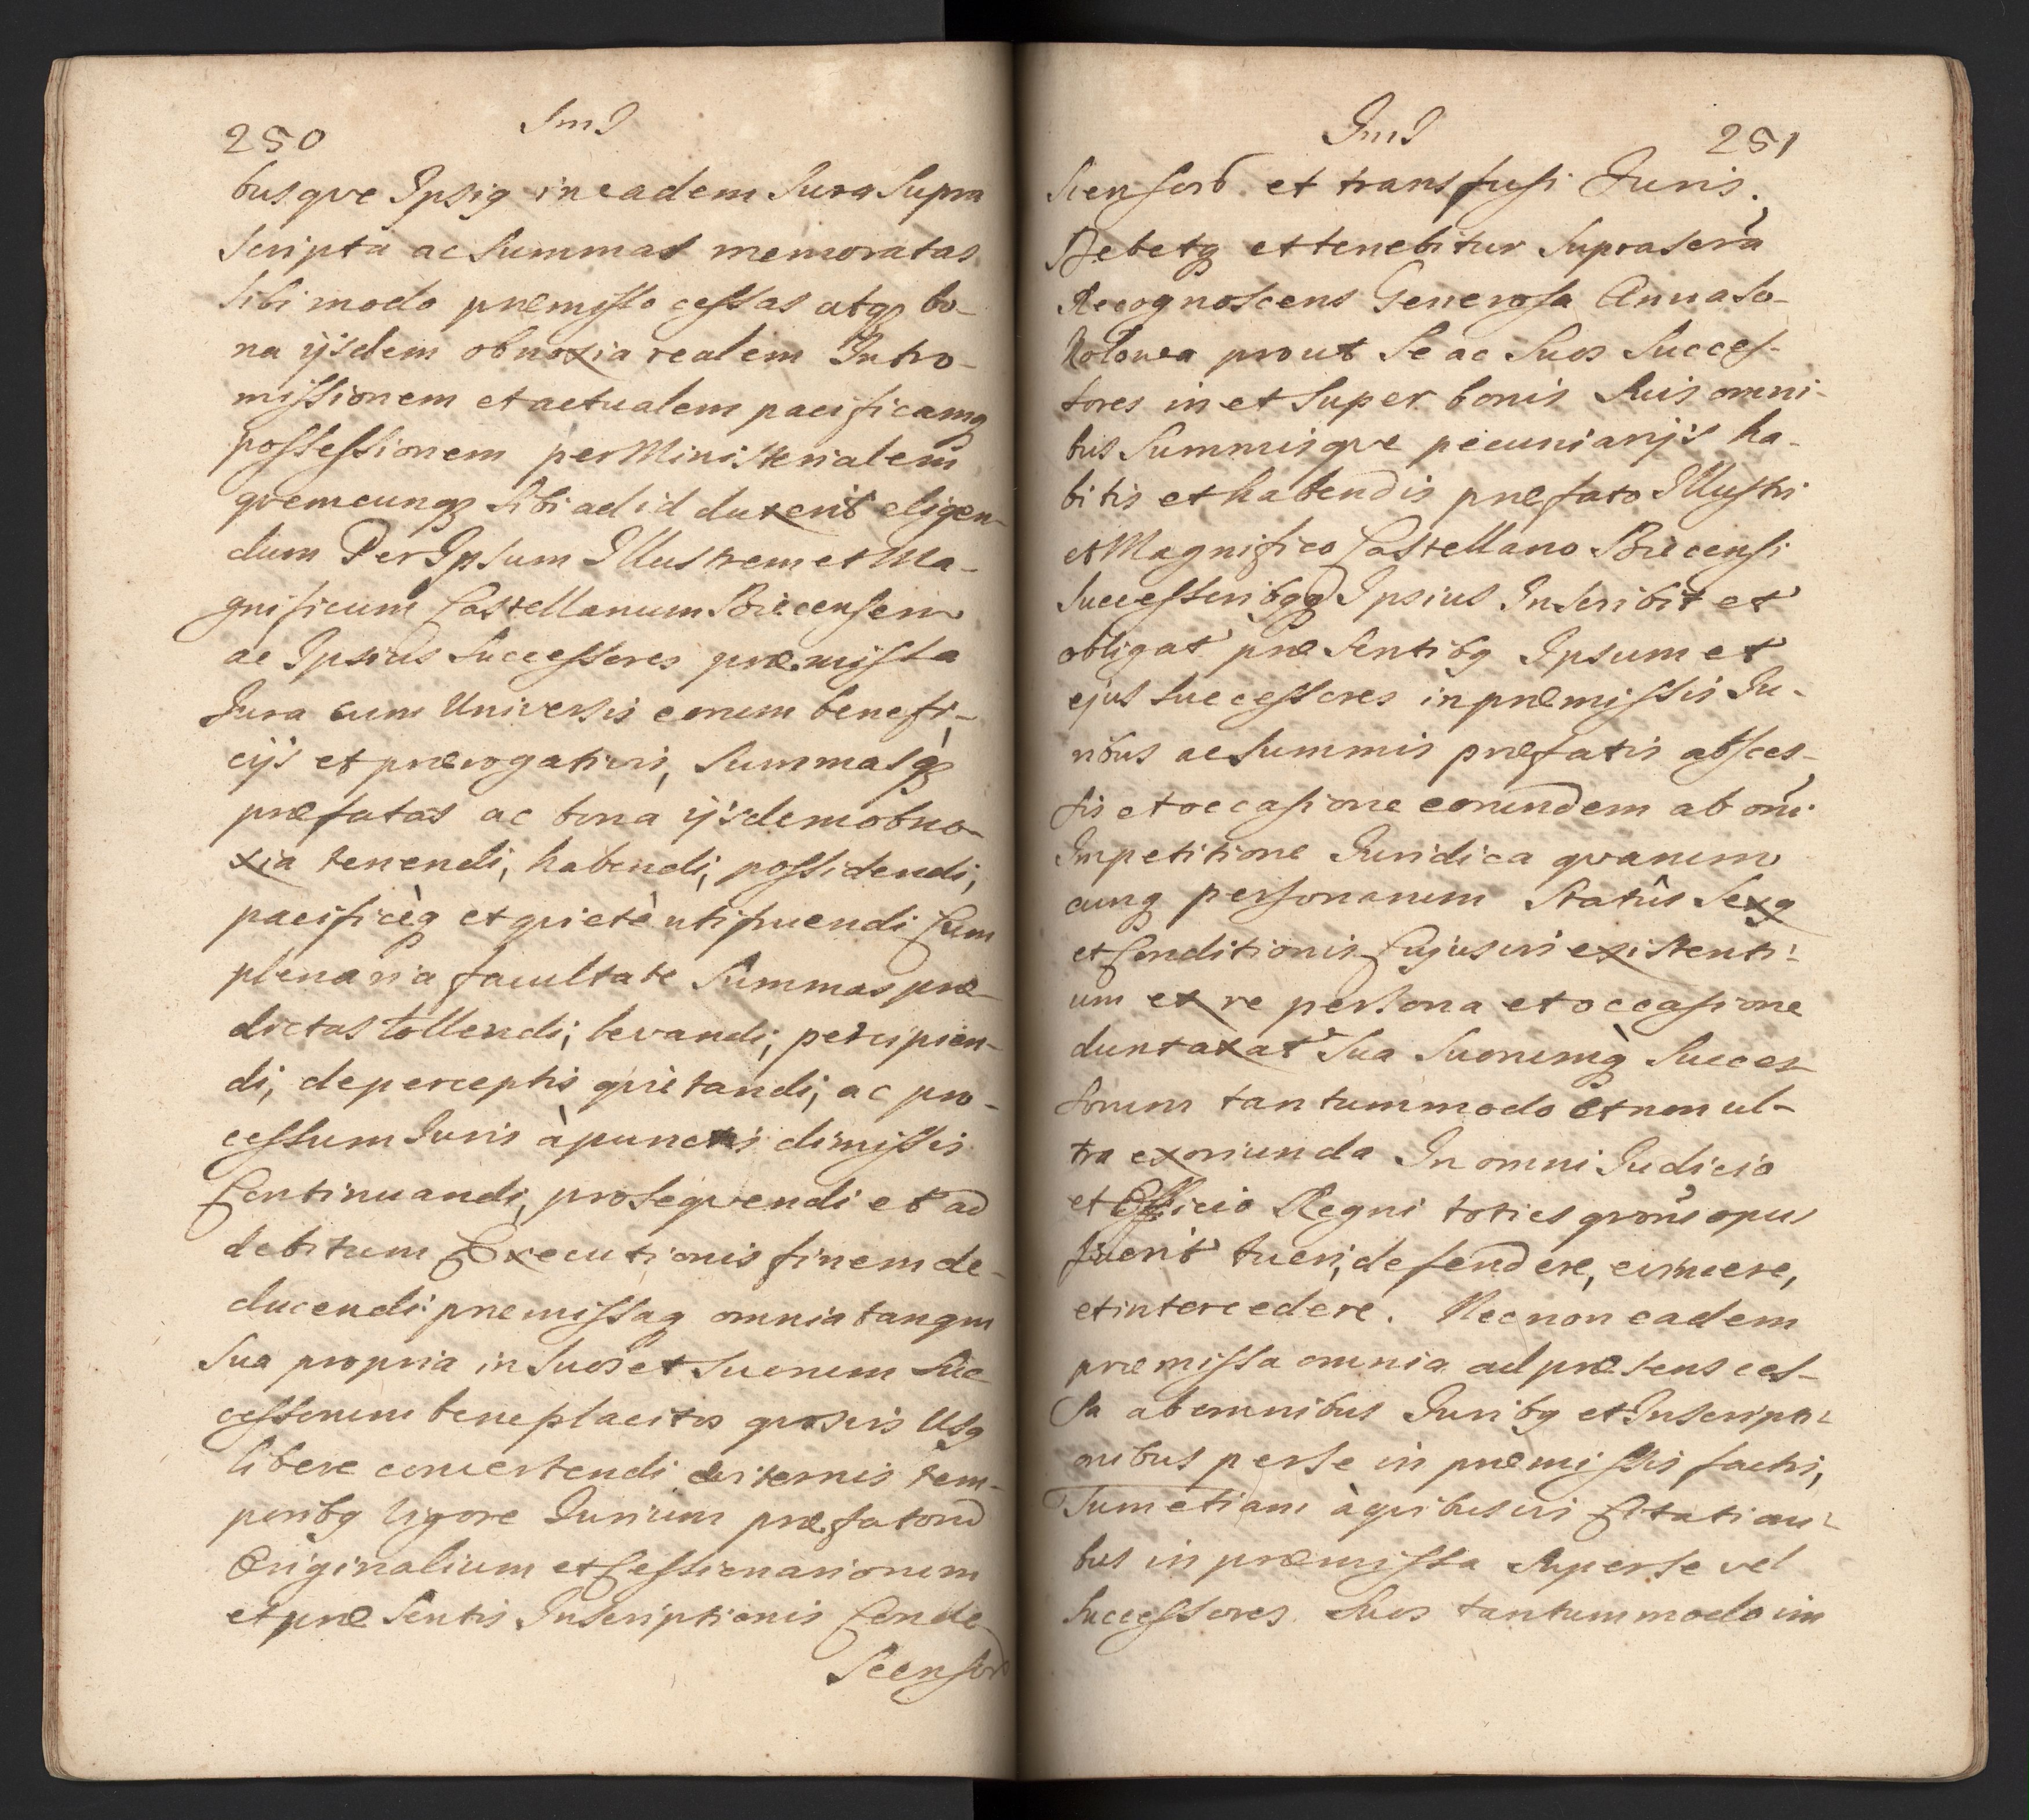 250
busqve Ipsiq in eadem Jura Supra
scripta ac Summas memoratas
sibi modo præmisso cessas atq bo-
na ijsdem obnoxia realem Intro-
missionem et actualem pacificamq
possessionem per Ministerialem
qvemcunq sibi ad id duxerit eligen-
dum Per Ipsum Illustrem et Ma-
gnificum Castellanum Biecensem
ac Ipsius Successores præmissa
Jura cum Universis eorum benefi-
cijs et prærogativis, Summasq
præfatas ac bona ijsdem obno-
xia tenendi, habendi, possidendi,
pacificèq et qvietè utifruendi Cum
plenaria facultate Summas præ-
dictas tollendi, levandi, percipien-
di, de perceptis qvietandi, ac pro-
cessum Juris à punctis dimissis
Continuandi, proseqvendi et ad
debitum Executionis finem de-
ducendi præmissaq omnia tanqm
Sua propria in Suos et Suorum Suc-
cessorum beneplacitos qvosvis Usq
libere convertendi æviternis tem-
poribq vigore Jurium præfatorū
Originalium et Cessionariorum
et præsentis Inscriptionis Conde-
Scensor
251
Scensorū et transfusi Juris.
Debetq et tenebitur Suprascrā
Recognoscens Generosa Anna So-
kolowa prout Se ac Suos Succes-
sores in et Super bonis Suis omni-
bus Summisqve pecuniarijs ha-
bitis et habendis præfato Illustri
et Magnifico Castellano Biecensi
Successoribqq Ipsius Inscribit et
obligat præsentibq Ipsum et
ejus Successores in præmissis Ju-
ribus ac Summis præfatis absces-
sis et occasione eorundem ab oni
Impetitione Juridica qvarum
cunq personarum Statûs Sexq
et Conditionis Cujusvis existenti-
um ex re persona et occasione
duntaxat Sua Suorumq Succes-
sorum tantummodo et non ul-
tra exoriunda In omni Judicio
et Officio Regni toties qvoties opus
fuerit tueri, defendere, evincere,
et intercedere. Nec non eadem
præmissa omnia ad præsens ces-
sa ab omnibus Juribq et Inscripti-
onibus per se in præmissis factis,
Tum etiam à qvibusvis Citationi-
bus in præmissa Super se vel
Successores Suos tantummodo im